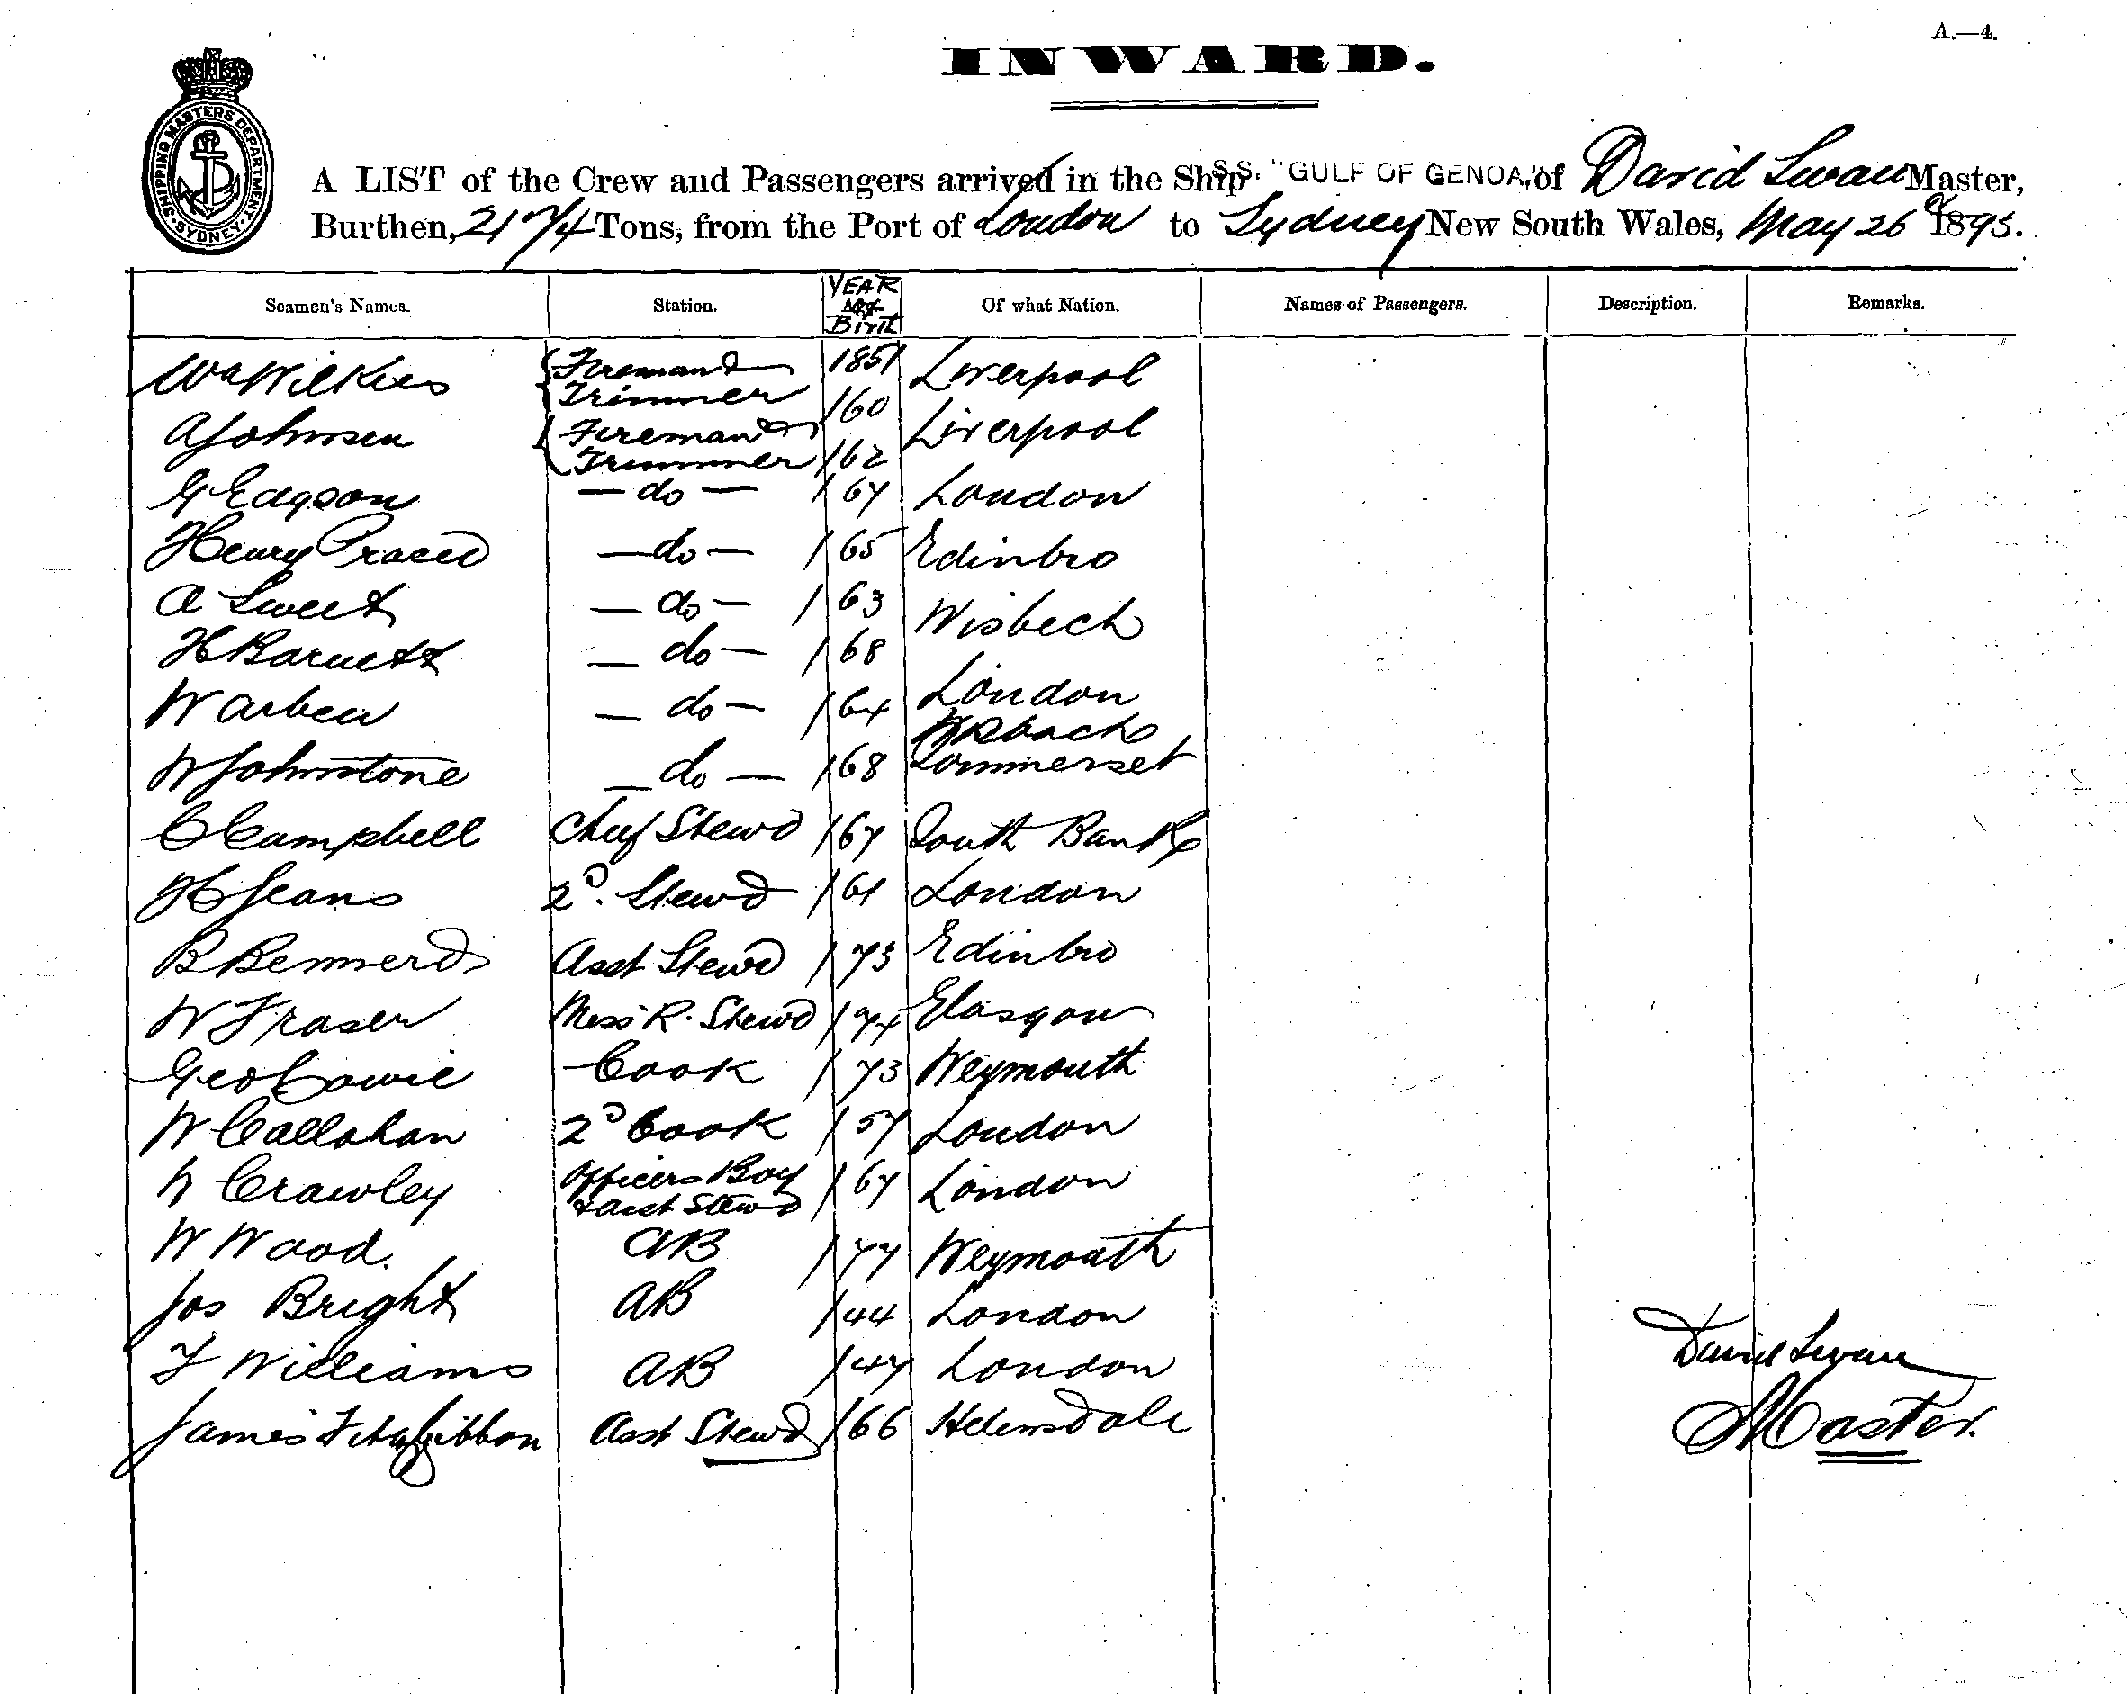 A.—4.
INWARD.
SHIPPING MASTERS DEPARTMENT SYDNEY
A LIST of the Crew and Passengers arrived in the Ship S.S. "GULF OF GENOA," of David Swan Master,
Burthen, Tons, from the Port of London to Sydney New South Wales, May 26 1895.
Seamen's Names. Station. YEAR of Birth Of what Nation. Names of Passengers. Description. Remarks.
Wm Wilkies Fireman & Trimmer 1857 Liverpool
A Johnsen Fireman & Trimmer /60 Liverpool
G Edgson — do — /62 London
Henry — do — /67 Edinbro
A Sweet — do — /65 Wisbech
H Barnett — do — /63 London
W — do — /68
W Johnstone — do — /64 Sommerset
C Campbell Chief Stewd /68 South Bank
H Jeans 2D. Stewd /67 London
B Bennerd Asst Stewd /61 Edinbro
W Fraser Mess R. Stewd /73 Glasgow
Geo Cowie Cook /74 Weymouth
W Callahan 2D Cook /73 London
Crawley Officers Boy & Asst Stewd /57 London
W Wood. AB /67 Weymouth
Jos Bright AB /77 London
F Williams AB /44 London
James Fitzgibbon Asst Stewd /47 Helmsdale
/66
David Swan
Master.